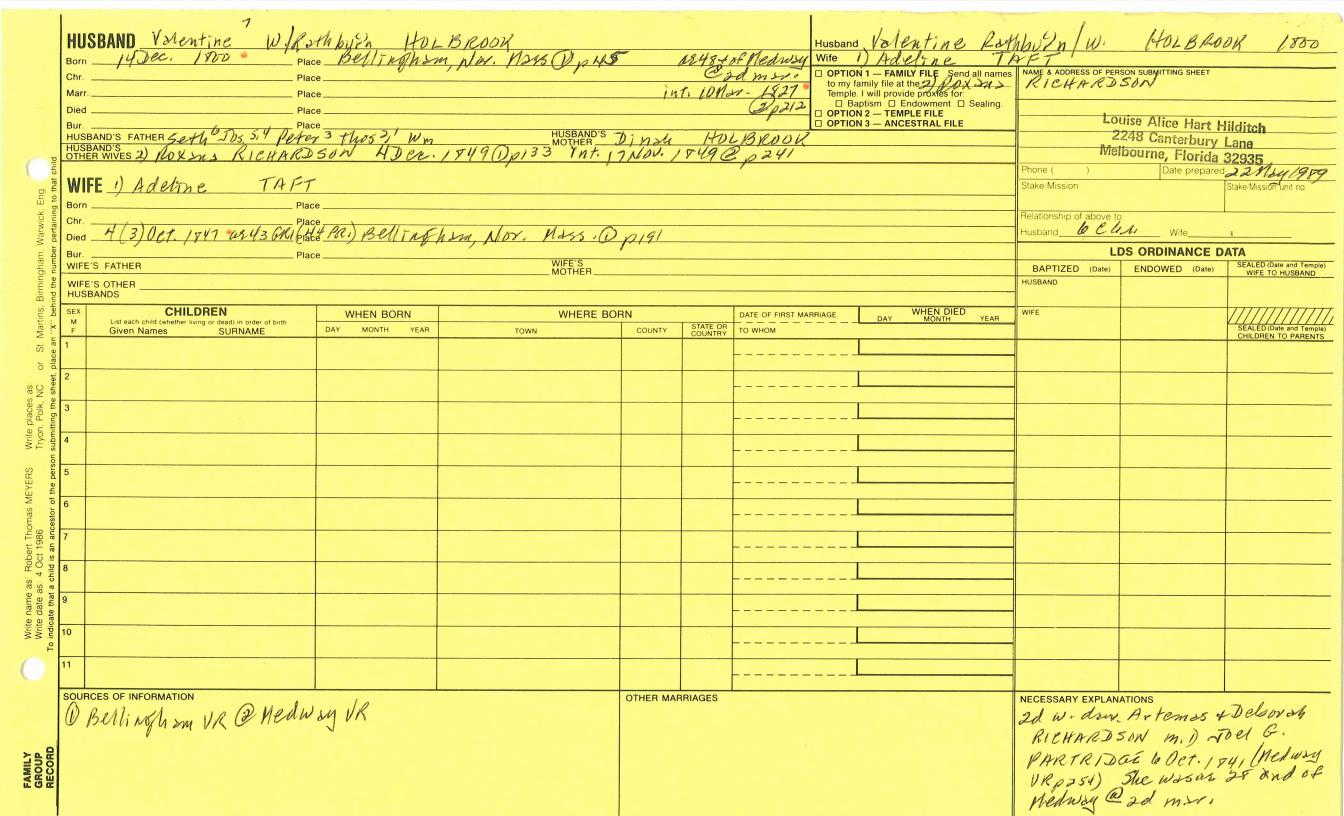 7
HUSBAND Valentine W/Rathburn HOLBROOK
Born 14 Dec. 1800 Place Bellingham, Nor. Mass ① p45 ae 48 + of Medway
Chr. Place @ 2d mar.
Marr. Place int. 10 Mar. 1827
Died Place ② p212
Bur. Place
HUSBAND'S FATHER Seth 6 Jos 5,4 Peter 3 Thos 2,1 Wm HUSBAND'S MOTHER Dinah HOLBROOK
HUSBAND'S OTHER WIVES 2) Roxana RICHARDSON 4 Dec. 1849 ① p133 Int. 17 Nov. 1849 ② p241
WIFE 1) Adeline TAFT
Born Place
Chr. Place
Died 4 (3) Oct. 1847 ae 43 GR1 (4+ PR1) Place Bellingham, Nor. Mass. ① p191
Bur. Place
WIFE'S FATHER WIFE'S MOTHER
WIFE'S OTHER HUSBANDS
Husband Valentine Rathburn/W. HOLBROOK 1800
Wife 1) Adeline TAFT
☐ OPTION 1 — FAMILY FILE Send all names
to my family file at the 2) Roxana
Temple. I will provide proxies for:
☐ Baptism ☐ Endowment ☐ Sealing.
☐ OPTION 2 — TEMPLE FILE
☐ OPTION 3 — ANCESTRAL FILE
NAME & ADDRESS OF PERSON SUBMITTING SHEET
RICHARDSON
Louise Alice Hart Hilditch
2248 Canterbury Lane
Melbourne, Florida 32935
Phone ( ) Date prepared 22 May 1989
Stake/Mission Stake/Mission unit no.
Relationship of above to
Husband 6 C Wife
LDS ORDINANCE DATA
BAPTIZED (Date) ENDOWED (Date) SEALED (Date and Temple) WIFE TO HUSBAND
HUSBAND
WIFE
SEALED (Date and Temple) CHILDREN TO PARENTS
SEX M F
CHILDREN
List each child (whether living or dead) in order of birth
Given Names SURNAME
WHEN BORN
DAY MONTH YEAR
WHERE BORN
TOWN COUNTY STATE OR COUNTRY
DATE OF FIRST MARRIAGE
TO WHOM
WHEN DIED
DAY MONTH YEAR
1
2
3
4
5
6
7
8
9
10
11
SOURCES OF INFORMATION
① Bellingham VR ② Medway VR
OTHER MARRIAGES
NECESSARY EXPLANATIONS
2d w. dau. Artemas & Deborah
RICHARDSON m. 1) Joel G.
PARTRIDGE 6 Oct. 1841 (Medway
VR p254) She was ae 28 and of
Medway @ 2d mar.
Write name as Robert Thomas MEYERS Write places as Tryon, Polk, NC or St. Martins, Birmingham, Warwick, Eng
Write date as 4 Oct 1986
To indicate that a child is an ancestor of the person submitting the sheet, place an "X" behind the number pertaining to that child
FAMILY
GROUP
RECORD